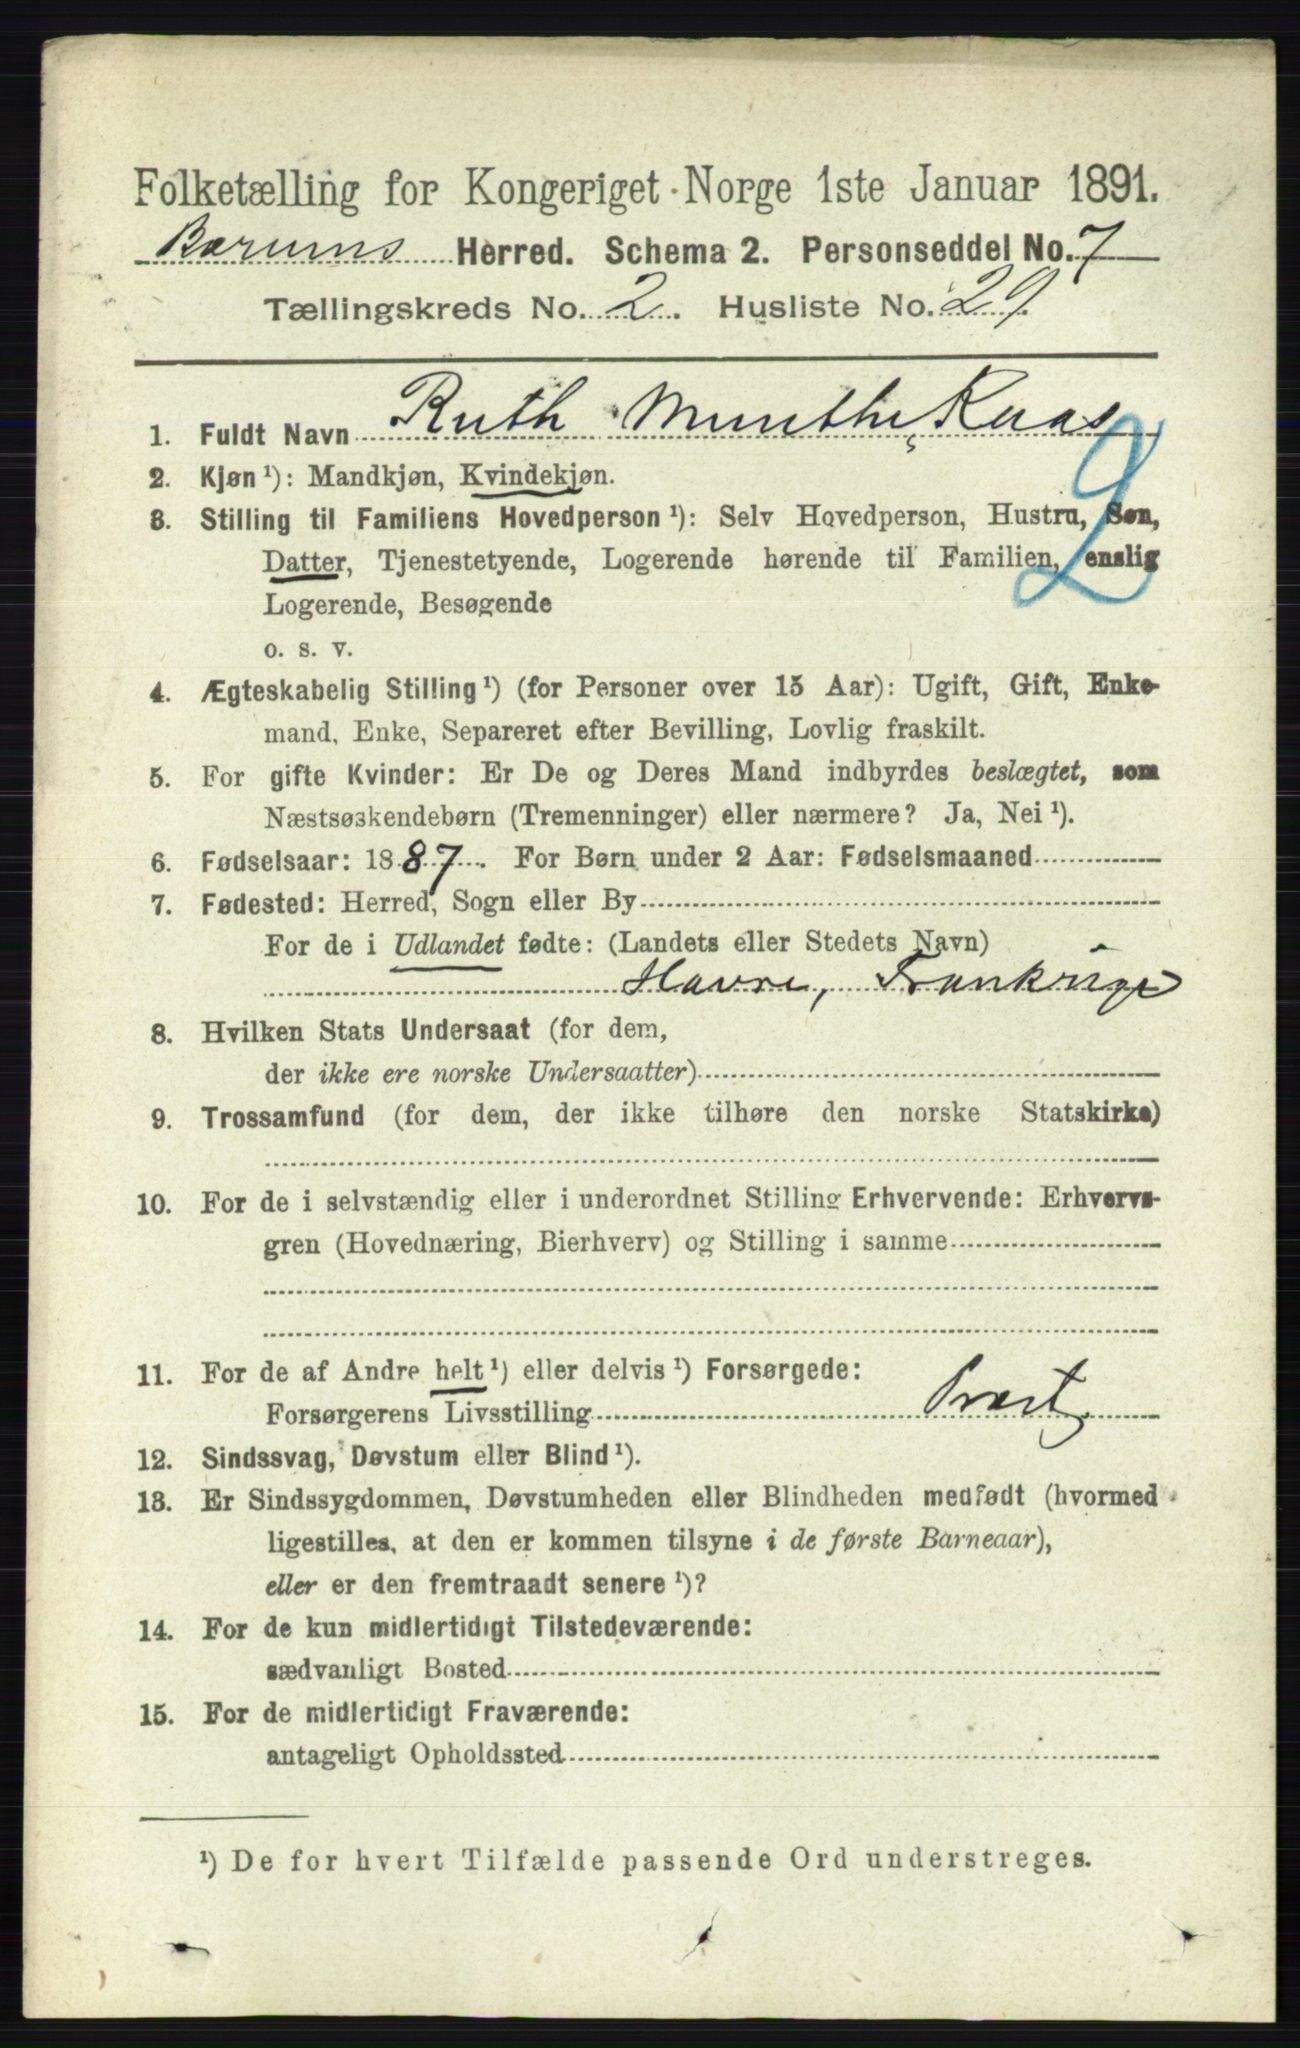 Folketælling for Kongeriget Norge 1ste Januar 1891.
Bærums Herred. Schema 2. Personseddel No. 7
Tællingskreds No. 2. Husliste No. 29.
1. Fuldt Navn Ruth Munthe Kaas
2
2. Kjøn ¹): Mandkjøn, Kvindekjøn.
3. Stilling til Familiens Hovedperson ¹): Selv Hovedperson, Hustru, Søn,
Datter, Tjenestetyende, Logerende hørende til Familien, enslig
Logerende, Besøgende
o. s. v.
4. Ægteskabelig Stilling ¹) (for Personer over 15 Aar): Ugift, Gift, Enke-
mand, Enke, Separeret efter Bevilling, Lovlig fraskilt.
5. For gifte Kvinder: Er De og Deres Mand indbyrdes beslægtet, som
Næstsøskendebørn (Tremenninger) eller nærmere? Ja, Nei ¹).
6. Fødselsaar: 1887. For Børn under 2 Aar: Fødselsmaaned
7. Fødested: Herred, Sogn eller By
For de i Udlandet fødte: (Landets eller Stedets Navn)
Havre, Frankrige
8. Hvilken Stats Undersaat (for dem,
der ikke ere norske Undersaatter)
9. Trossamfund (for dem, der ikke tilhøre den norske Statskirke)
10. For de i selvstændig eller i underordnet Stilling Erhvervende: Erhvervs-
gren (Hovednæring, Bierhverv) og Stilling i samme
11. For de af Andre helt ¹) eller delvis ¹) Forsørgede:
Forsørgerens Livsstilling Præst
12. Sindssvag, Døvstum eller Blind ¹).
13. Er Sindssygdommen, Døvstumheden eller Blindheden medfødt (hvormed
ligestilles, at den er kommen tilsyne i de første Barneaar),
eller er den fremtraadt senere ¹)?
14. For de kun midlertidigt Tilstedeværende:
sædvanligt Bosted
15. For de midlertidigt Fraværende:
antageligt Opholdssted
¹) De for hvert Tilfælde passende Ord understreges.